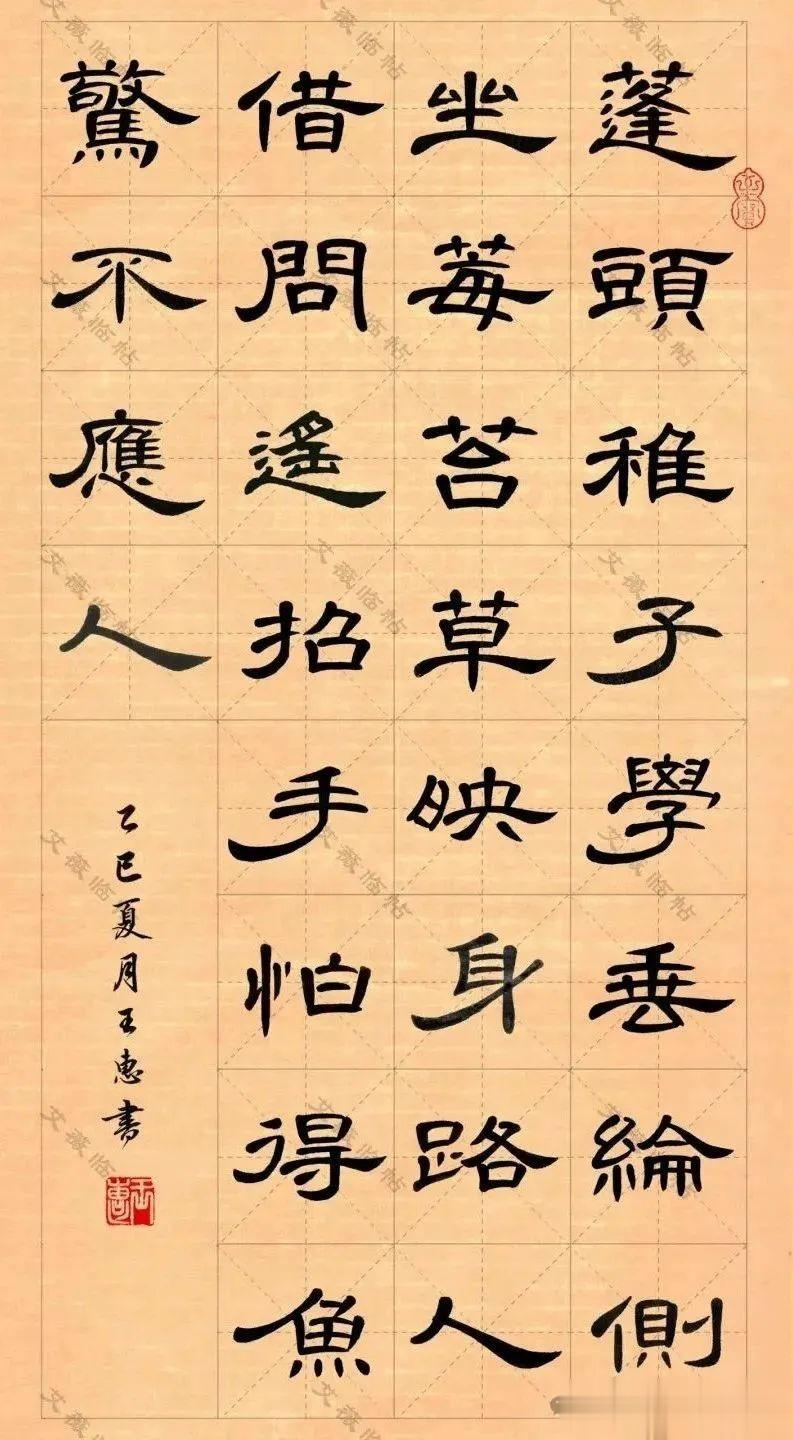 蓬頭稚子學垂綸側
坐莓苔草映身路人
借問遙招手怕得魚
驚不應人
乙巳夏月王惠書
王惠
艾薇临帖